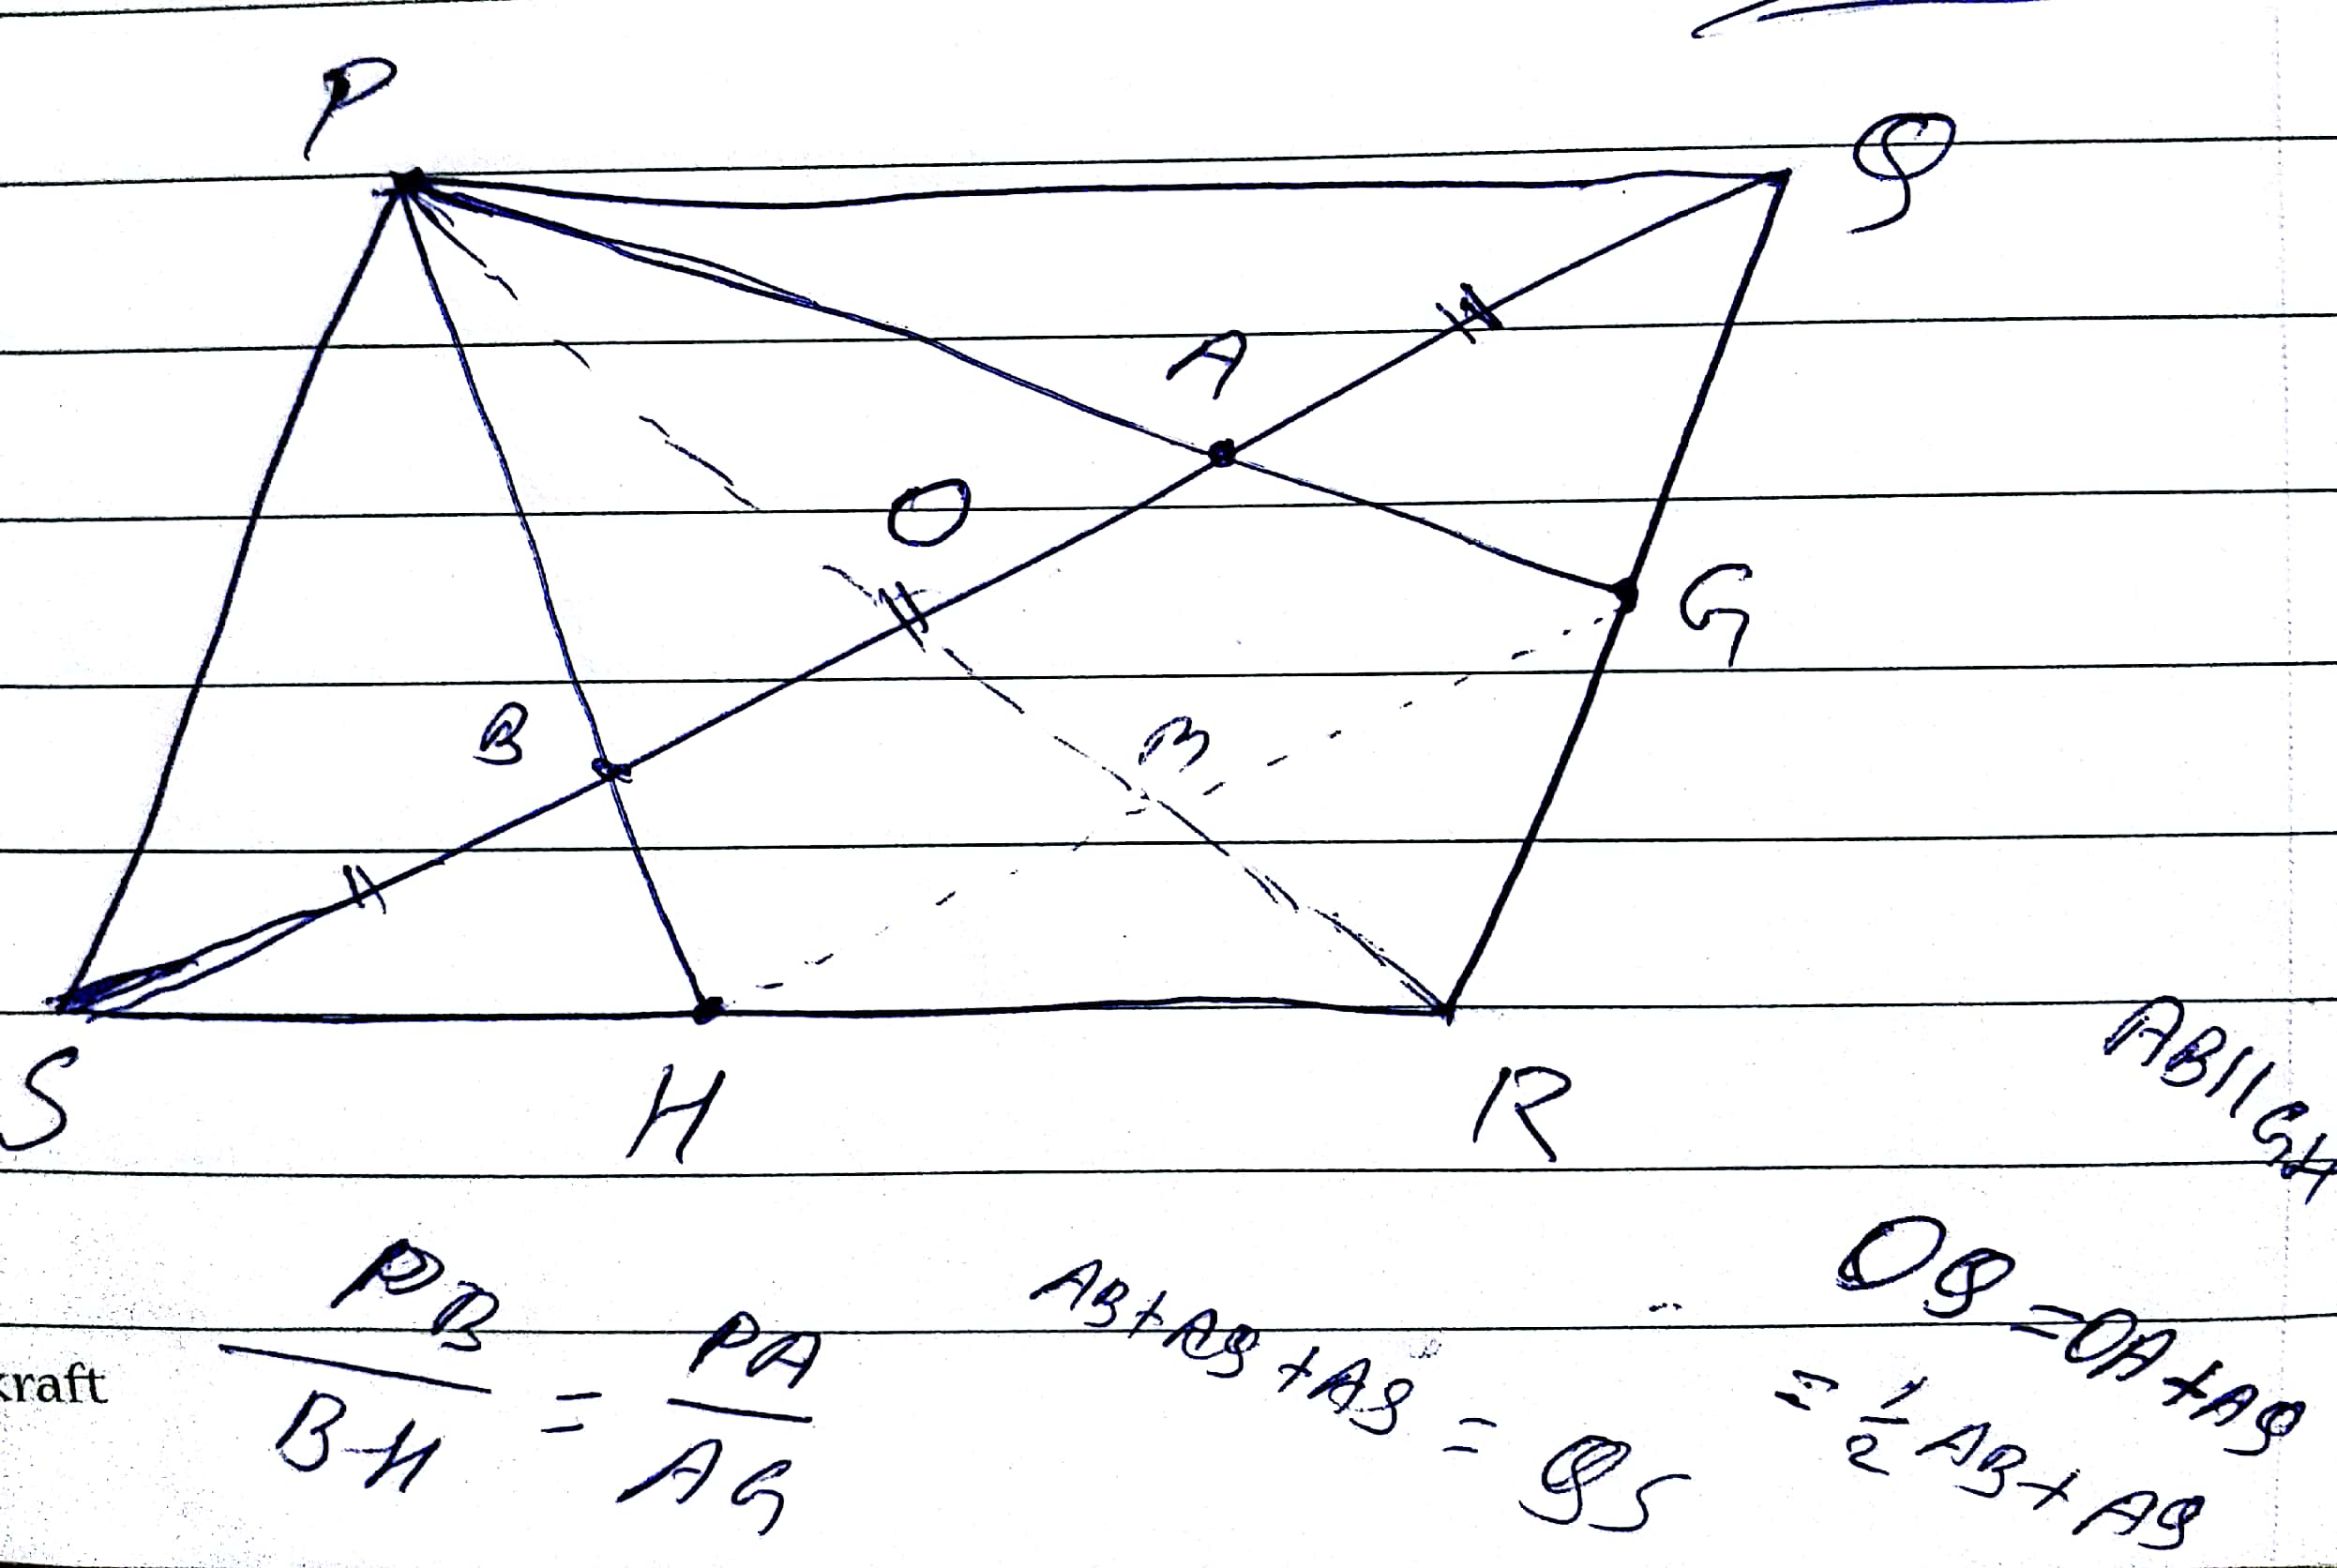 P
Q
A
O
G
B
M
S
H
R
AB || GH
PB/BH = PA/AG
AB + AQ + AQ = QS
OQ = OA + AQ
= 1/2 AB + AQ
kraft